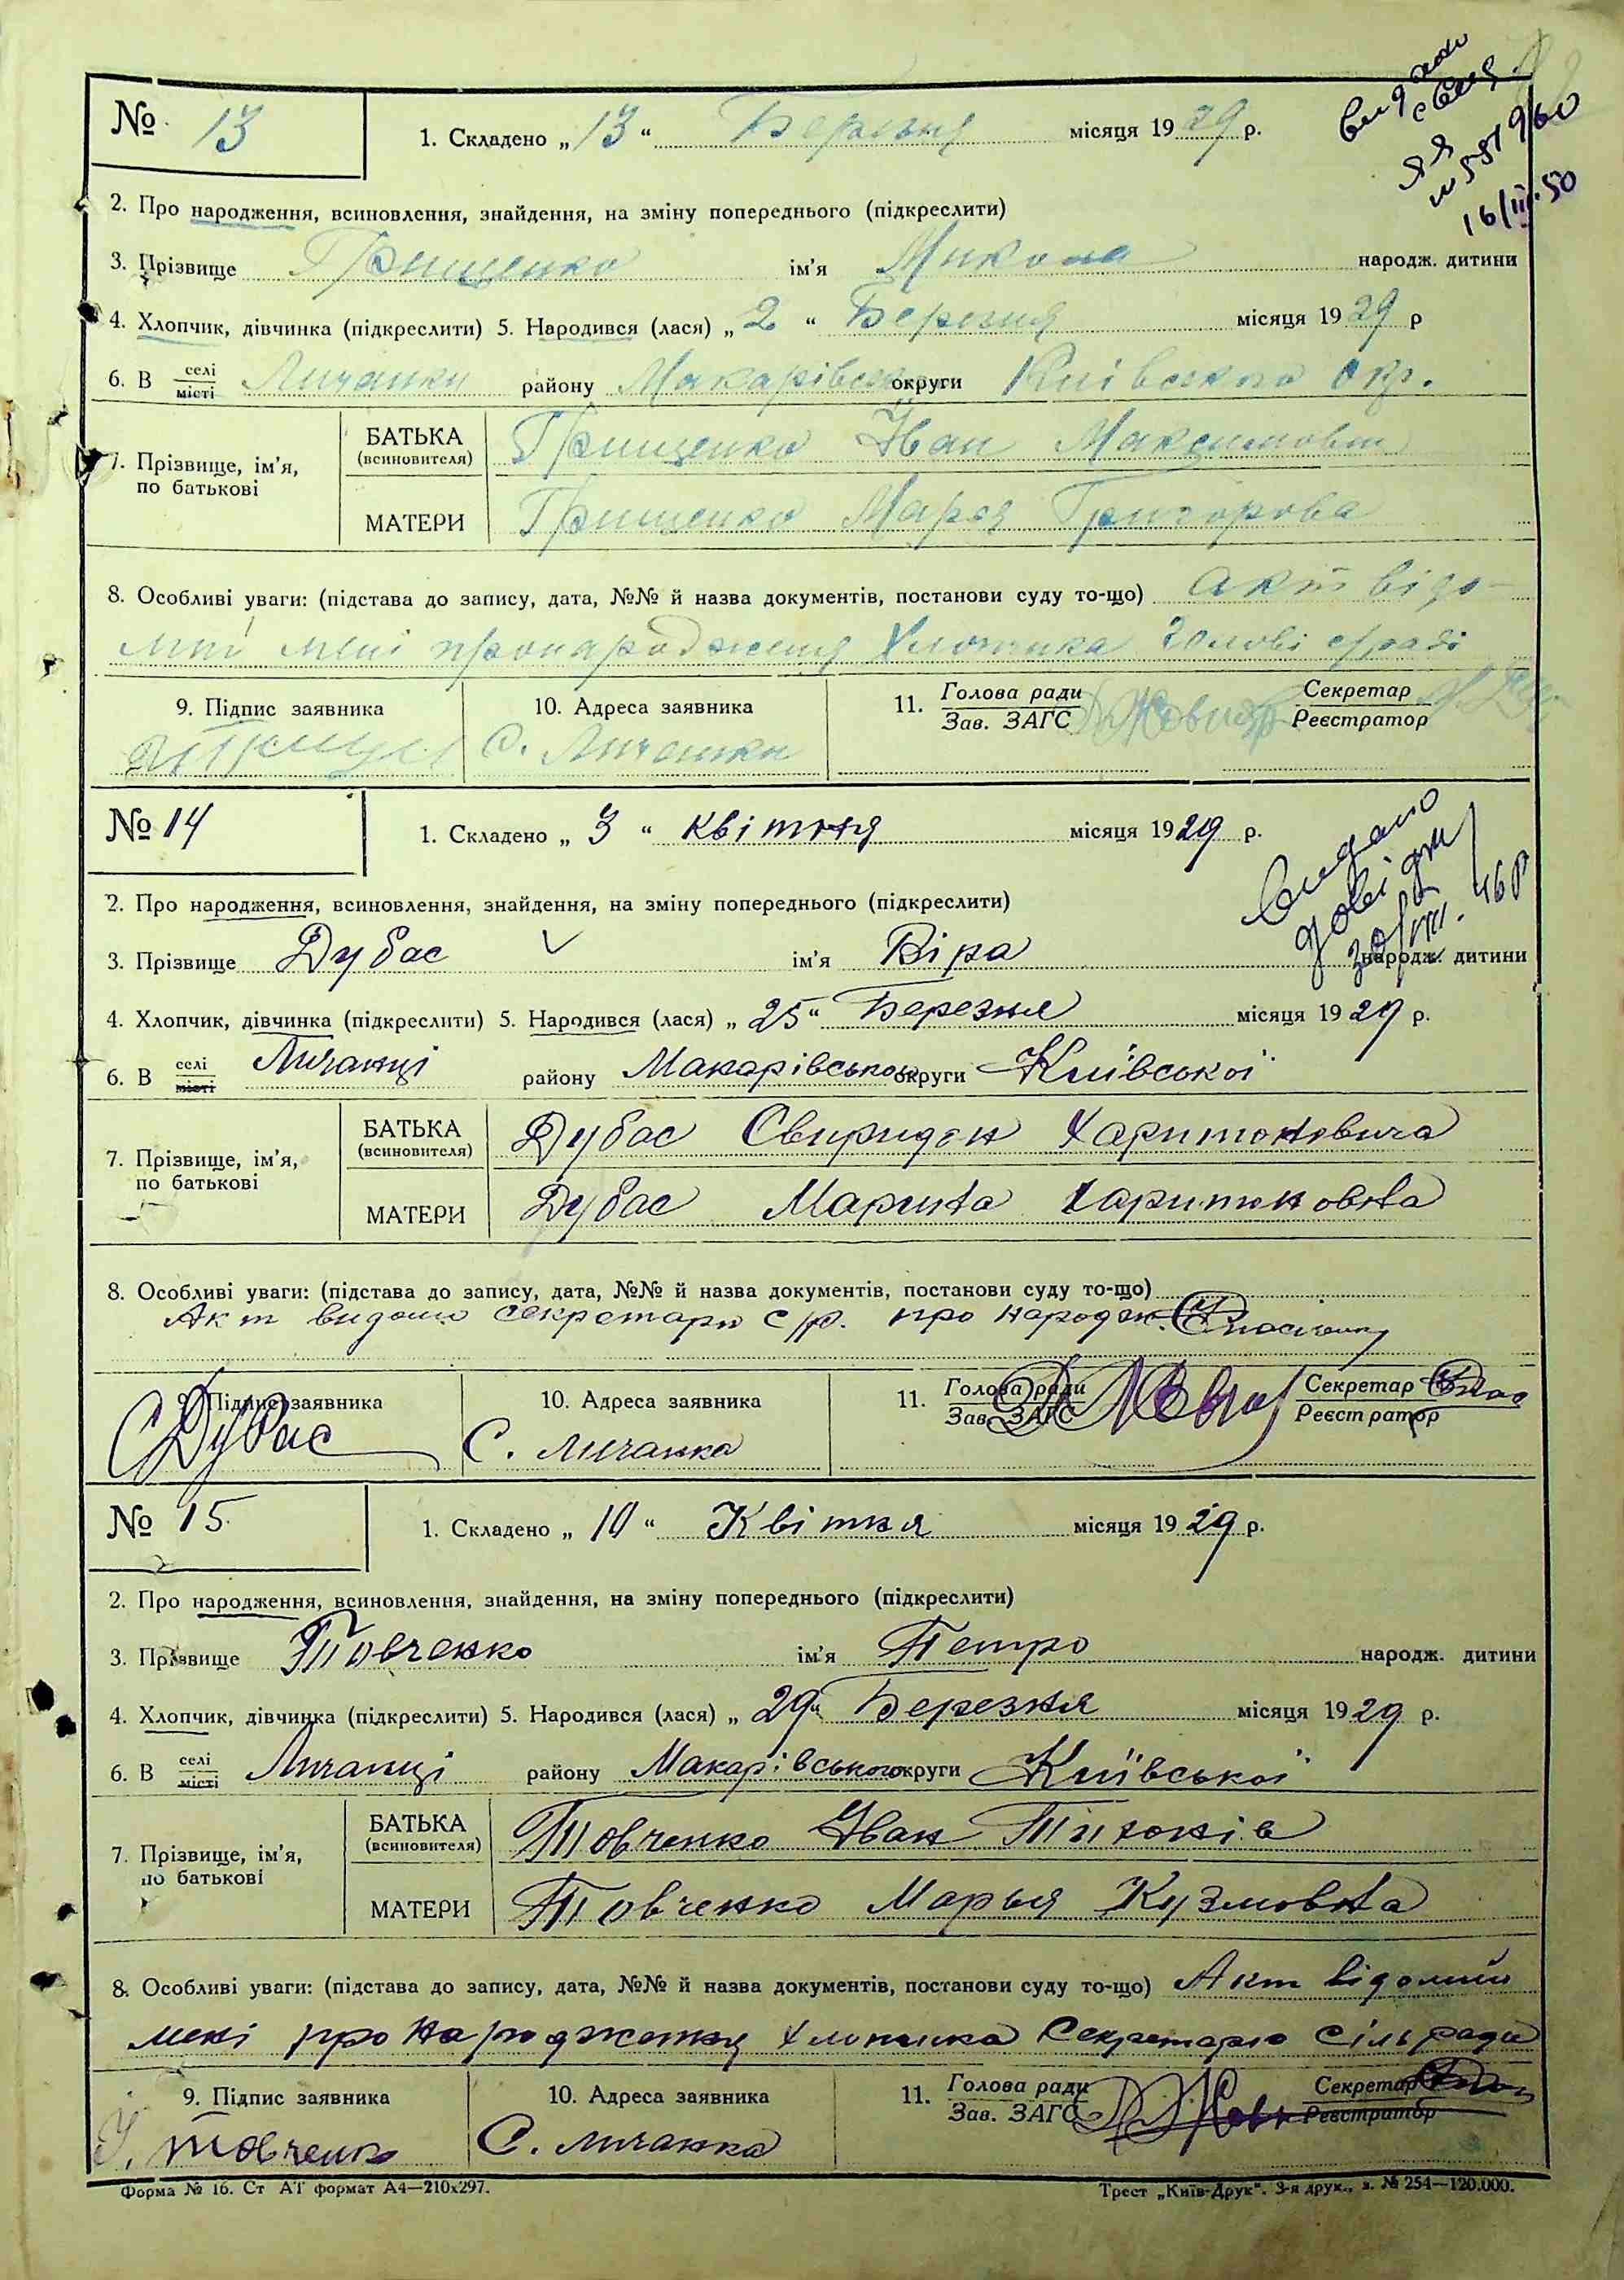 видано
свид.
ЯЯ
№ 551960
16/III.50
№ 13
1. Складено „ 13 “ Березня місяця 19 29 р.
2. Про народження, всиновлення, знайдення, на зміну попереднього (підкреслити)
3. Прізвище Грищенко ім'я Микола народж. дитини
4. Хлопчик, дівчинка (підкреслити) 5. Народився (лася) „ 2 “ Березня місяця 19 29 р
6. В селі місті Личанки району Макарівськ округи Київського Окр.
7. Прізвище, ім'я, по батькові
БАТЬКА (всиновителя) Грищенко Іван Максимович
МАТЕРИ Грищенко Марія Григорова
8. Особливі уваги: (підстава до запису, дата, №№ й назва документів, постанови суду то-що) Акт відо-
мий мені про народження Хлопчика Голові с/раді
9. Підпис заявника 10. Адреса заявника 11. Голова ради Зав. ЗАГС Секретар Реєстратор
С. Личанки
№ 14
1. Складено „ 3 “ квітня місяця 19 29 р.
Видано
довідку
30/VIII. 46 р
2. Про народження, всиновлення, знайдення, на зміну попереднього (підкреслити)
3. Прізвище Дубас ім'я Віра народж. дитини
4. Хлопчик, дівчинка (підкреслити) 5. Народився (лася) „ 25 “ Березня місяця 19 29 р.
6. В селі місті Личанці району Макарівсько округи Київської
7. Прізвище, ім'я, по батькові
БАТЬКА (всиновителя) Дубас Свиридон Харитоновича
МАТЕРИ Дубас Марина Харитоновна
8. Особливі уваги: (підстава до запису, дата, №№ й назва документів, постанови суду то-що)
Акт видомо секретарю с/р. про народж.
9. Підпис заявника 10. Адреса заявника 11. Голова ради Зав. ЗАГС Секретар Реєстратор
СДубас С. Личанка
№ 15.
1. Складено „ 10 “ Квітня місяця 19 29 р.
2. Про народження, всиновлення, знайдення, на зміну попереднього (підкреслити)
3. Прізвище Товченко ім'я Петро народж. дитини
4. Хлопчик, дівчинка (підкреслити) 5. Народився (лася) „ 29 “ Березня місяця 19 29 р.
6. В селі місті Личанці району Макарівського округи Київської
7. Прізвище, ім'я, по батькові
БАТЬКА (всиновителя) Товченко Іван Тихонів
МАТЕРИ Товченко Марья Кузмовна
8. Особливі уваги: (підстава до запису, дата, №№ й назва документів, постанови суду то-що) Акт відомий
мені про народження хлопчика Секретарю сільради
9. Підпис заявника 10. Адреса заявника 11. Голова ради Зав. ЗАГС Секретар Реєстратор
І. Товченко С. Личанка
Форма № 16. Ст АТ формат А4—210х297. Трест „Київ-Друк“. 3-я друк., з. № 254—120.000.